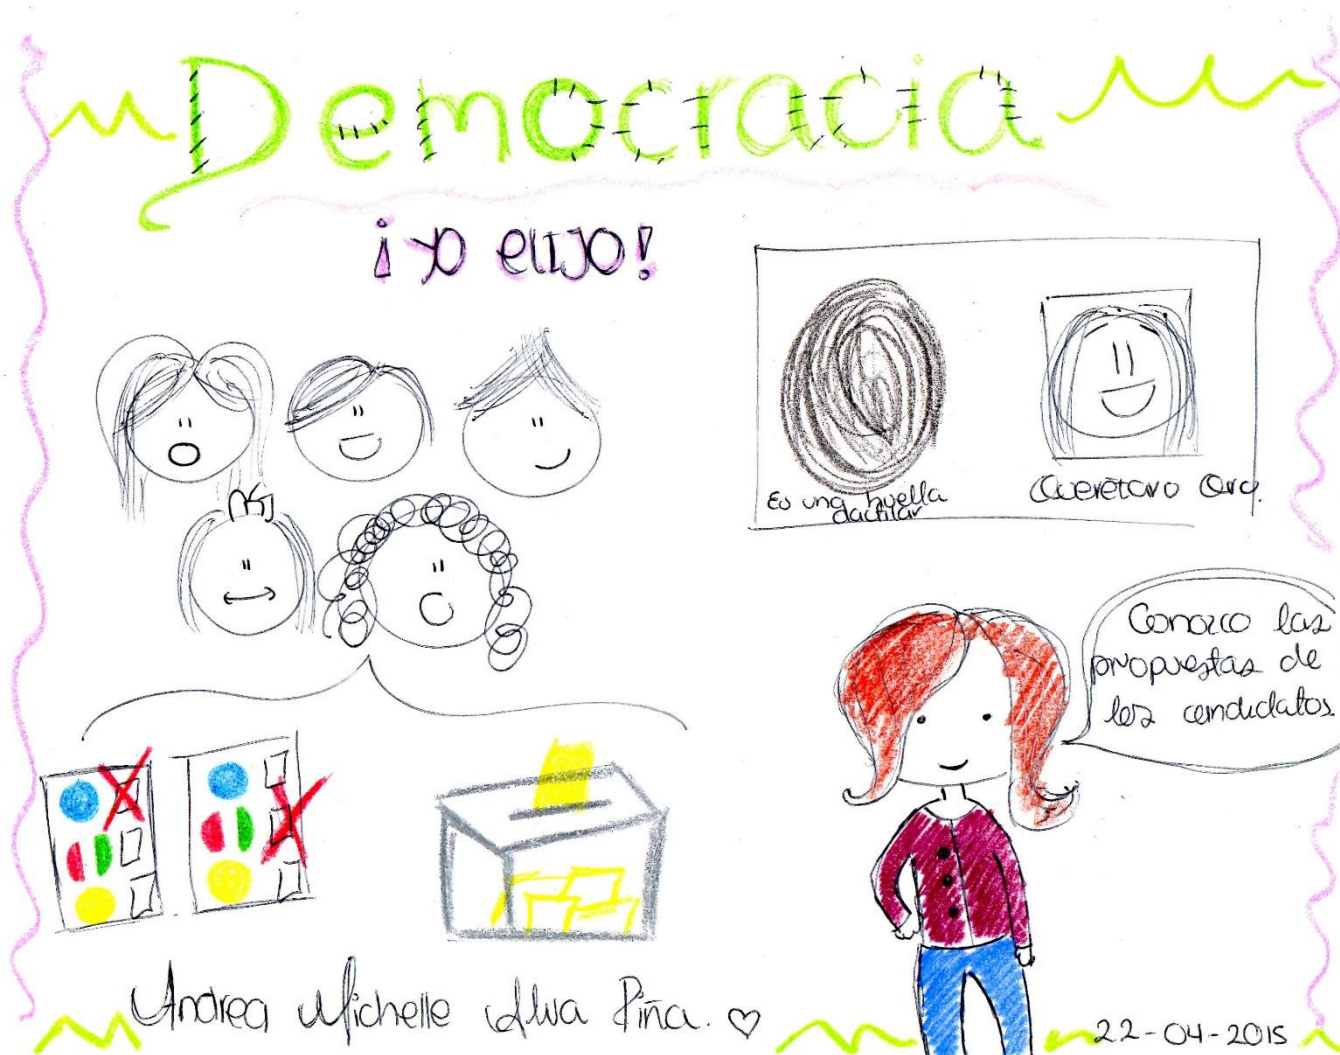 Democracia
¡yo elijo!
Es una huella
dactilar
Querétaro Qro.
Conozco las
propuestas de
los candidatos.
Andrea Michelle Alva Piña. ♡
22-04-2015